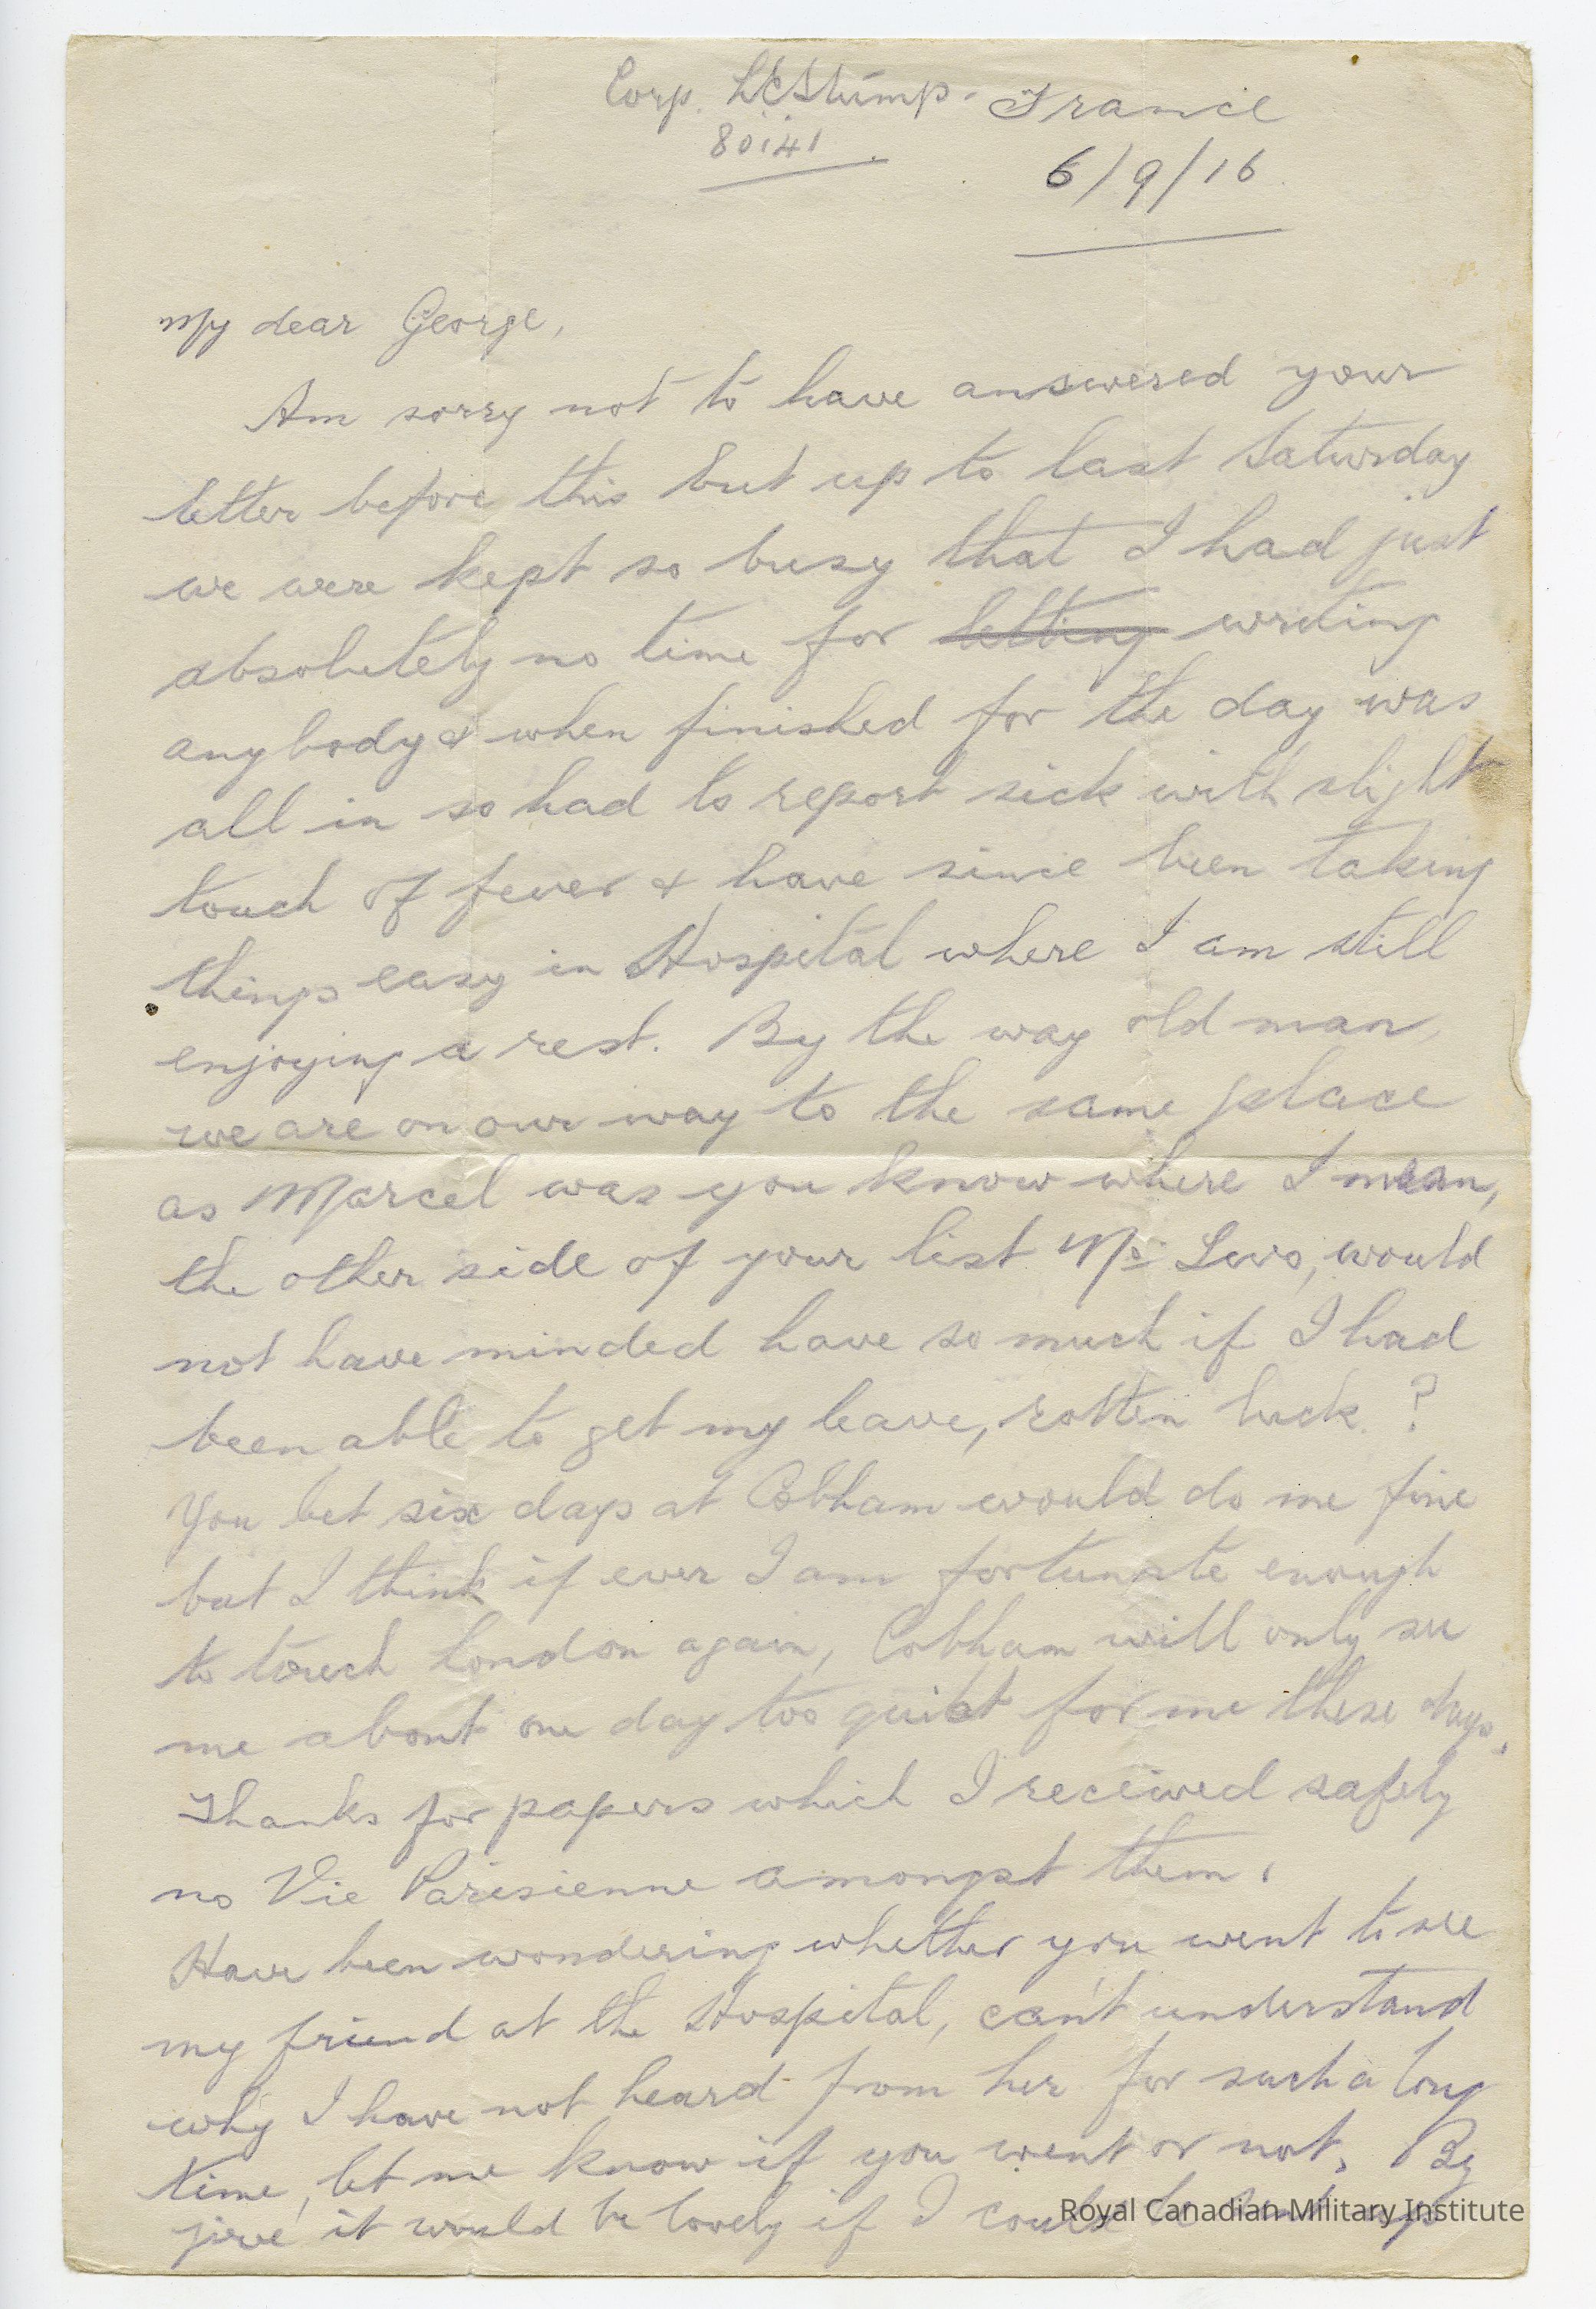 Corp. L C Stump. France
80141
6/9/16
My dear George,
Am sorry not to have answered your
letter before this but up to last Saturday
we were kept so busy that I had just
absolutely no time for letting writing
anybody & when finished for the day was
all in so had to report sick with slight
touch of fever & have since been taking
things easy in Hospital where I am still
enjoying a rest. By the way old man,
we are on our way to the same place
as Marcel was you know where I mean,
the other side of your list Mr would
not have minded have so much if I had
been able to get my leave, rotten luck ?
You bet six days at Cobham would do me fine
but I think if ever I am fortunate enough
to touch London again, Cobham will only see
me about one day too quiet for me these days.
Thanks for papers which I received safely
no Vie Parisienne amongst them.
Have been wondering whether you went to see
my friend at the Hospital, can't understand
why I have not heard from her for such a long
time, let me know if you went or not. By
jove it would be lovely if I could be
Royal Canadian Military Institute